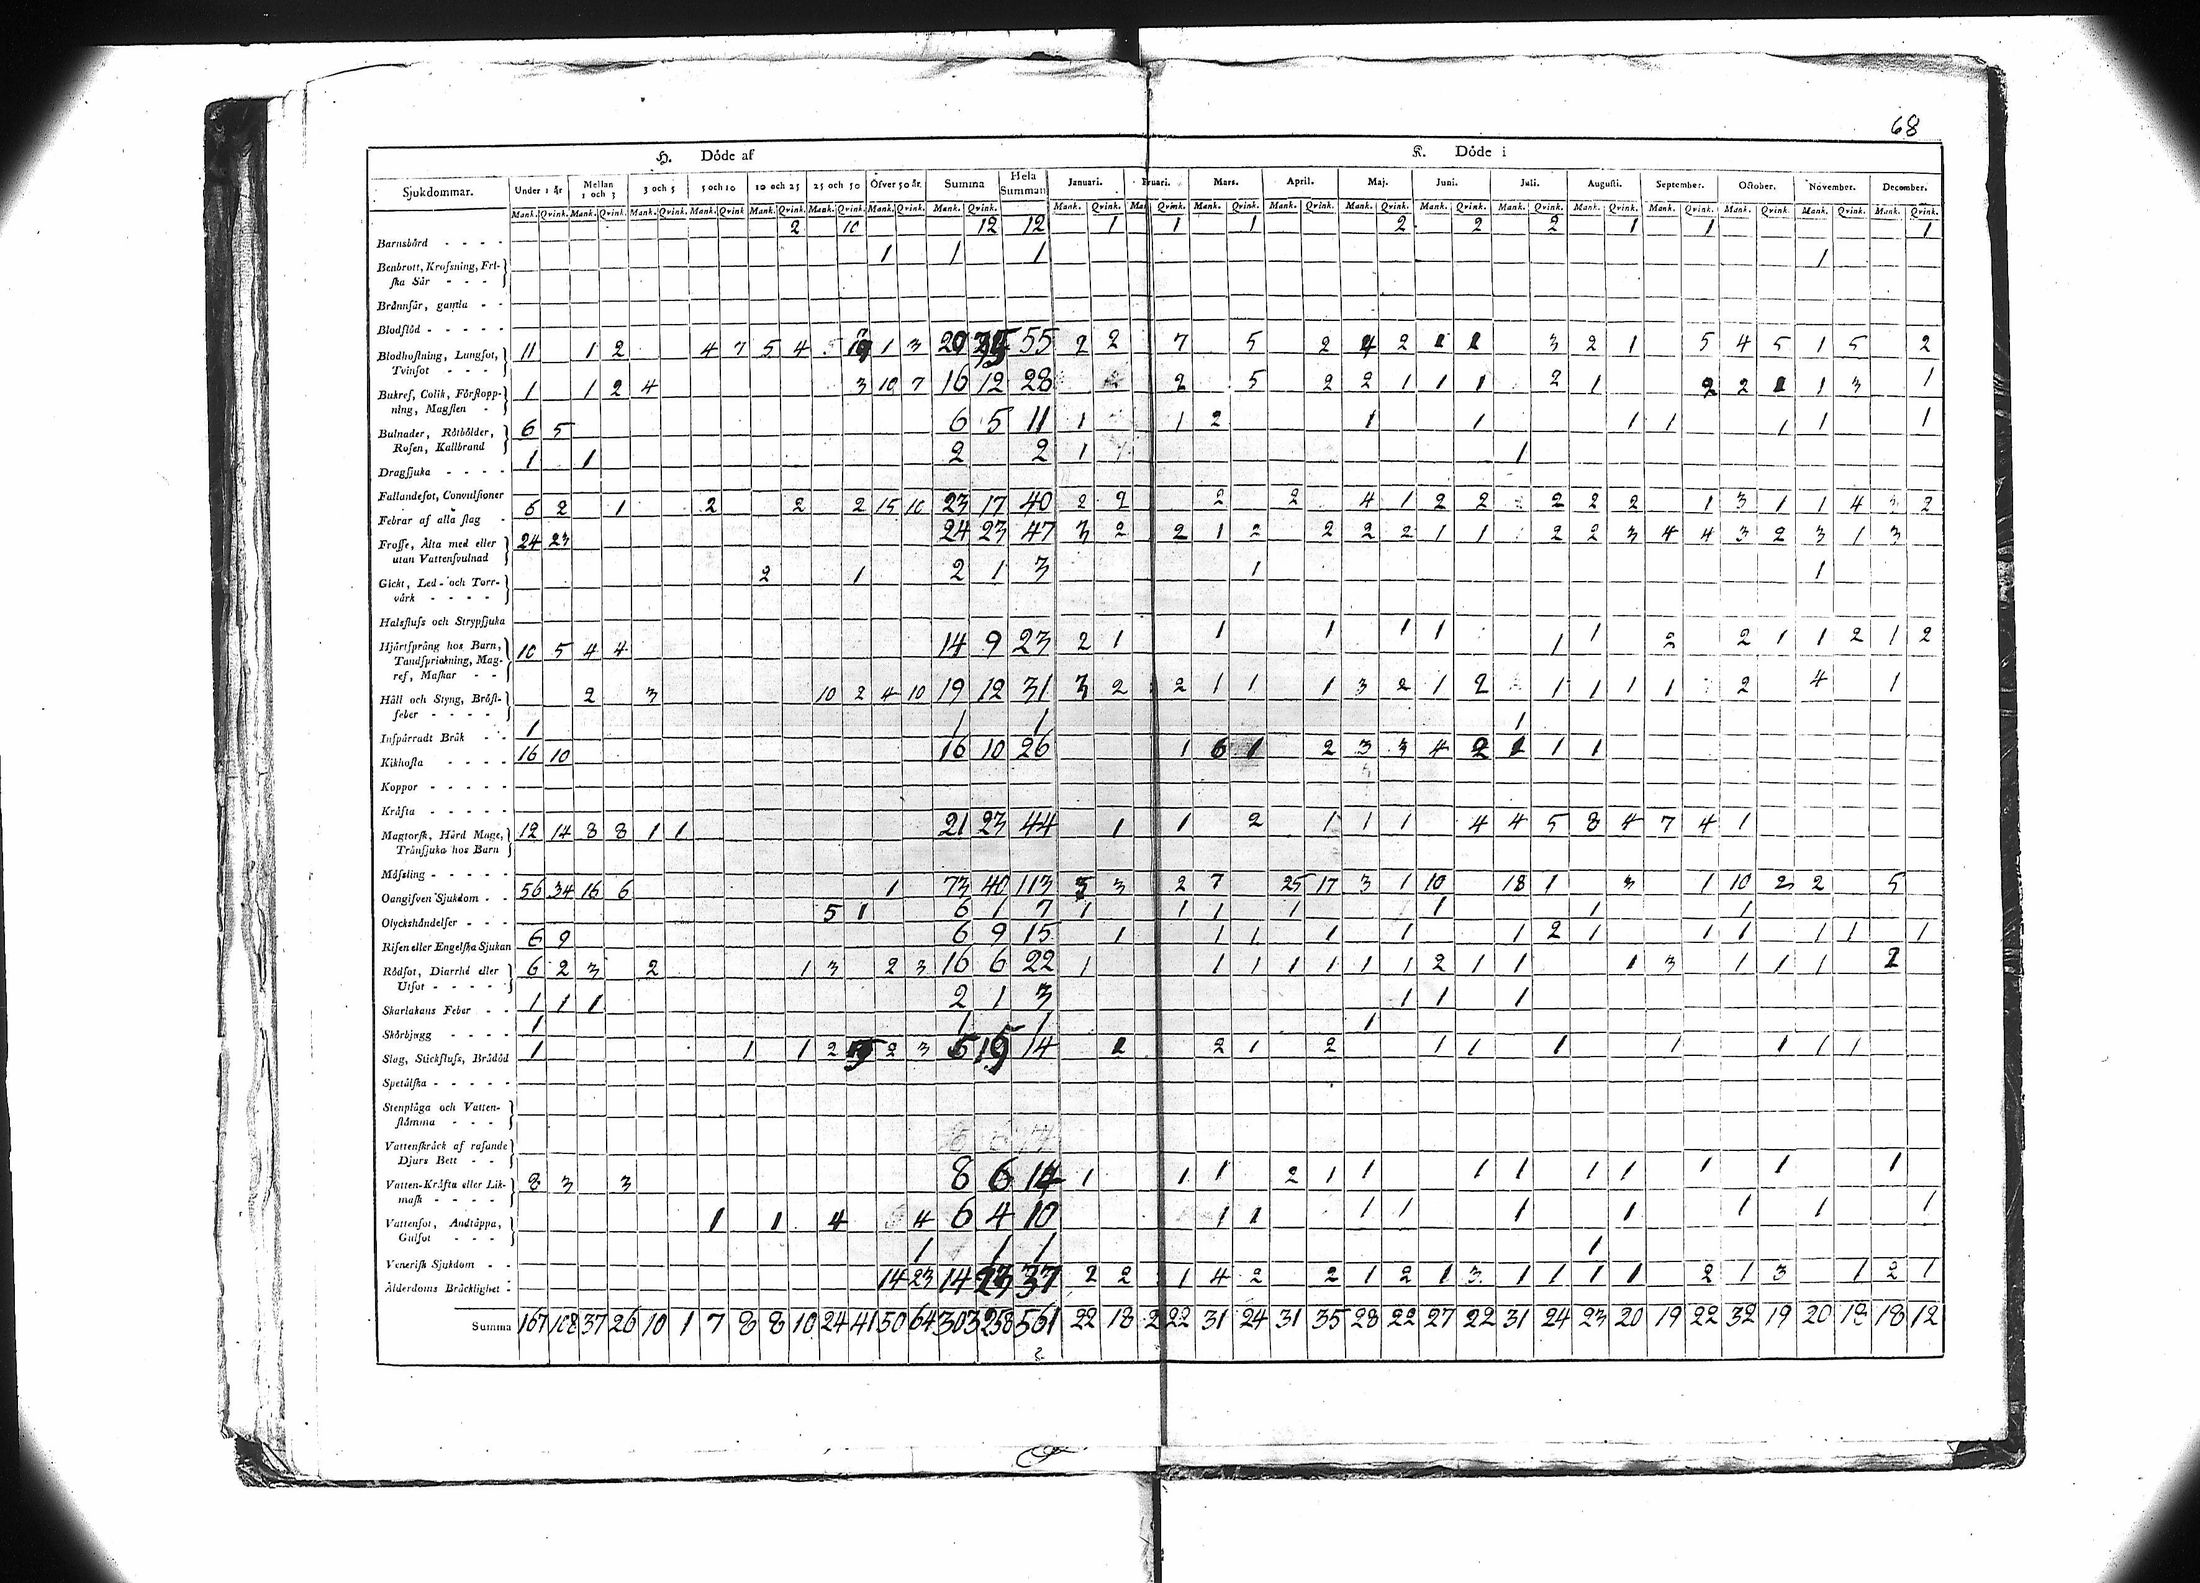 68
H. Döde af K. Döde i
Sjukdommar. Under 1 år Mellan 1 och 3 3 och 5 5 och 10 10 och 25 25 och 50 Öfver 50 år. Summa Hela Summan Januari. Mars. April. Maj. Juni. Juli. Augusti. September. October. November. December.
Mank. Qvink. Mank. Qvink. Mank. Qvink. Mank. Qvink Mank. Qvink. Mank. Qvink. Mank. Qvink. Mank. Qvink. Mank. Qvink. Qvink. Mank. Qvink. Mank. Qvink. Mank. Qvink. Mank. Qvink. Mank. Qvink. Mank. Qvink. Mank. Qvink. Mank. Qvink. Mank. Qvink. Mank. Qvink.
Barnsbörd - - - - 2 10 12 12 1 1 1 2 2 2 1 1 1
Benbrott, Krosning, Fri- 1 1 1 1
ska Sår - - -
Brännsår, gamla - -
Blodflöd - - - - -
Blodhostning, Lungsot, 11 1 2 4 7 5 4 1 3 20 35 55 2 2 7 5 2 4 2 1 1 3 2 1 5 4 5 1 5 2
Tvinsot - - -
Bukref, Colik, Förstopp- 1 1 2 4 3 10 7 16 12 28 2 5 2 2 1 1 1 2 1 2 2 1 1 3 1
ning, Magsten -
Bulnader, Rötbölder, 6 5 6 5 11 1 1 2 1 1 1 1 1 1 1
Rosen, Kallbrand
Dragsjuka - - - - 1 1 2 2 1 1
Fallandesot, Convulsioner
Febrar af alla slag - 6 2 1 2 2 2 15 10 23 17 40 2 2 2 2 4 1 2 2 2 2 2 1 3 1 1 4 3 2
Frosse, Älta med eller 24 23 24 23 47 3 2 2 1 2 2 2 2 1 1 2 2 3 4 4 3 2 3 1 3
utan Vattensvulnad
Gickt, Led- och Torr- 2 1 2 1 3 1 1
värk - - - -
Halsfluss och Strypsjuka
Hjärtsprång hos Barn, 10 5 4 4 14 9 23 2 1 1 1 1 1 1 1 2 2 1 1 2 1 2
Tandspricknin­g, Mag-
ref, Maskar - -
Håll och Styng, Bröst- 2 3 10 2 4 10 19 12 31 3 2 2 1 1 1 3 2 1 2 1 1 1 1 2 4 1
feber - - - -
Inspärradt Bråk - - 1 1 1 1
Kikhosta - - - - 16 10 16 10 26 1 6 1 2 3 3 4 2 1 1 1
Koppor - - - - -
Kräfta - - - - -
Magtorsk, Hård Mage, 12 14 8 8 1 1 21 23 44 1 1 2 1 1 1 4 4 5 8 4 7 4 1
Trånsjuka hos Barn
Mässling - - - - -
Oangifven Sjukdom - - 56 34 16 6 1 73 40 113 3 3 2 7 25 17 3 1 10 18 1 3 1 10 2 2 5
Olyckshändelser - - - 5 1 6 1 7 1 1 1 1 1 1 1
Risen eller Engelska Sjukan 6 9 6 9 15 1 1 1 1 1 1 2 1 1 1 1 1 1
Rödsot, Diarrhé eller 6 2 3 2 1 3 2 3 16 6 22 1 1 1 1 1 1 1 2 1 1 1 3 1 1 1 2
Utsot - - - - -
Skarlakans Feber - - 1 1 1 2 1 3 1 1 1
Skörbjugg - - - - 1 1 1 1
Slag, Stickfluss, Brådöd 1 1 1 2 5 2 3 5 14 2 2 1 2 1 1 1 1 1 1 1
Spetälska - - - - -
Stenplåga och Vatten-
stämma - - -
Vattenskräck af rasande
Djurs Bett - -
Vatten-Kräfta eller Lik- 8 3 3 8 6 14 1 1 1 2 1 1 1 1 1 1 1 1 1
mask - - - -
Vattensot, Andtäppa, 1 1 4 4 6 4 10 1 1 1 1 1 1 1 1 1
Gulsot - - -
Venerisk Sjukdom - - 1 1 1 1
Ålderdoms Bräcklighet - 14 23 14 23 37 2 2 1 4 2 2 1 2 1 3 1 1 1 1 2 1 3 1 2 1
Summa 167 108 37 26 10 1 7 8 8 10 24 41 50 64 303 258 561 22 18 2 22 31 24 31 35 28 22 27 22 31 24 23 20 19 22 32 19 20 18 18 12